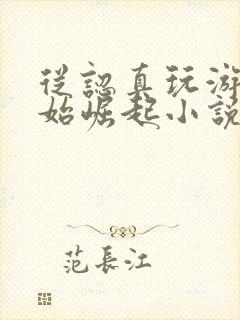 從認真玩游
始崛起小說
范長江